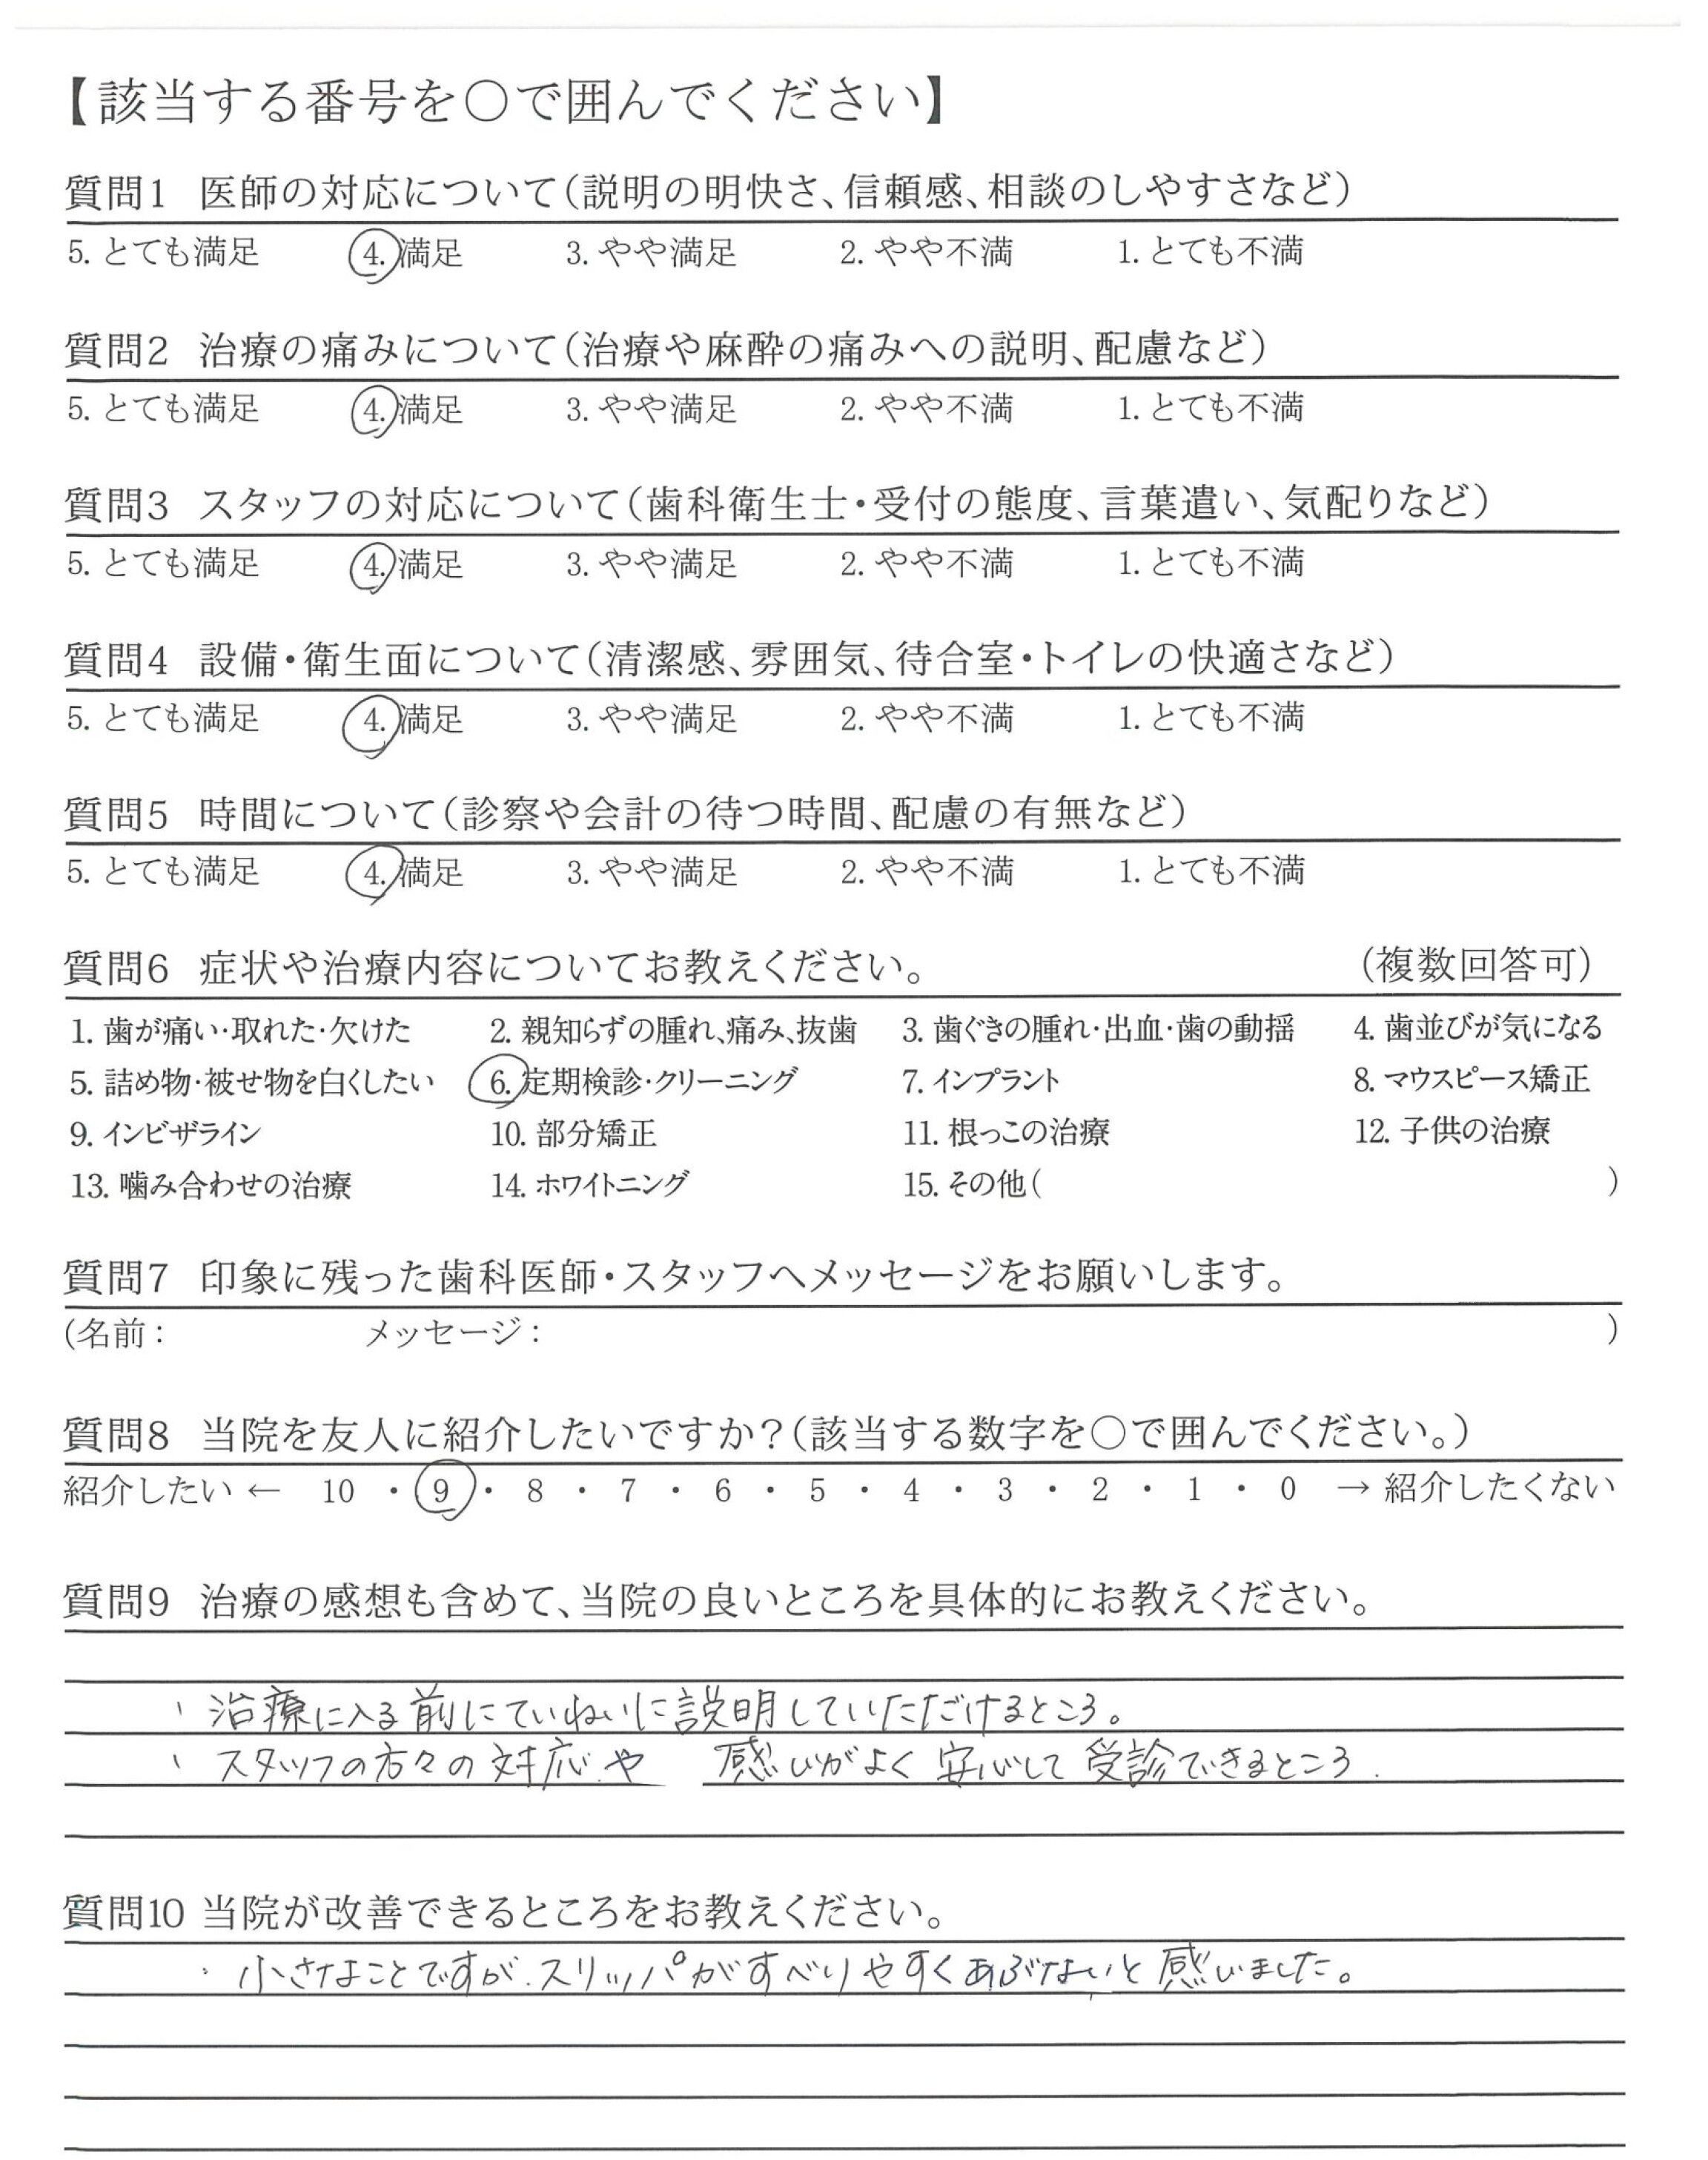 【該当する番号を〇で囲んでください】
質問1 医師の対応について(説明の明快さ、信頼感、相談のしやすさなど)
5. とても満足 4. 満足 3. やや満足 2. やや不満 1. とても不満
質問2 治療の痛みについて(治療や麻酔の痛みへの説明、配慮など)
5. とても満足 4. 満足 3. やや満足 2. やや不満 1. とても不満
質問3 スタッフの対応について(歯科衛生士・受付の態度、言葉遣い、気配りなど)
5. とても満足 4. 満足 3. やや満足 2. やや不満 1. とても不満
質問4 設備・衛生面について(清潔感、雰囲気、待合室・トイレの快適さなど)
5. とても満足 4. 満足 3. やや満足 2. やや不満 1. とても不満
質問5 時間について(診察や会計の待つ時間、配慮の有無など)
5. とても満足 4. 満足 3. やや満足 2. やや不満 1. とても不満
質問6 症状や治療内容についてお教えください。 (複数回答可)
1. 歯が痛い・取れた・欠けた 2. 親知らずの腫れ、痛み、抜歯 3. 歯ぐきの腫れ・出血・歯の動揺 4. 歯並びが気になる
5. 詰め物・被せ物を白くしたい 6. 定期検診・クリーニング 7. インプラント 8. マウスピース矯正
9. インビザライン 10. 部分矯正 11. 根っこの治療 12. 子供の治療
13. 噛み合わせの治療 14. ホワイトニング 15. その他( )
質問7 印象に残った歯科医師・スタッフへメッセージをお願いします。
(名前: メッセージ: )
質問8 当院を友人に紹介したいですか?(該当する数字を〇で囲んでください。)
紹介したい ← 10 ・ 9 ・ 8 ・ 7 ・ 6 ・ 5 ・ 4 ・ 3 ・ 2 ・ 1 ・ 0 → 紹介したくない
質問9 治療の感想も含めて、当院の良いところを具体的にお教えください。
・治療に入る前にていねいに説明していただけるところ。
・スタッフの方々の対応や 感じがよく安心して受診できるところ.
質問10 当院が改善できるところをお教えください。
・小さなことですが、スリッパがすべりやすくあぶないと感じました。